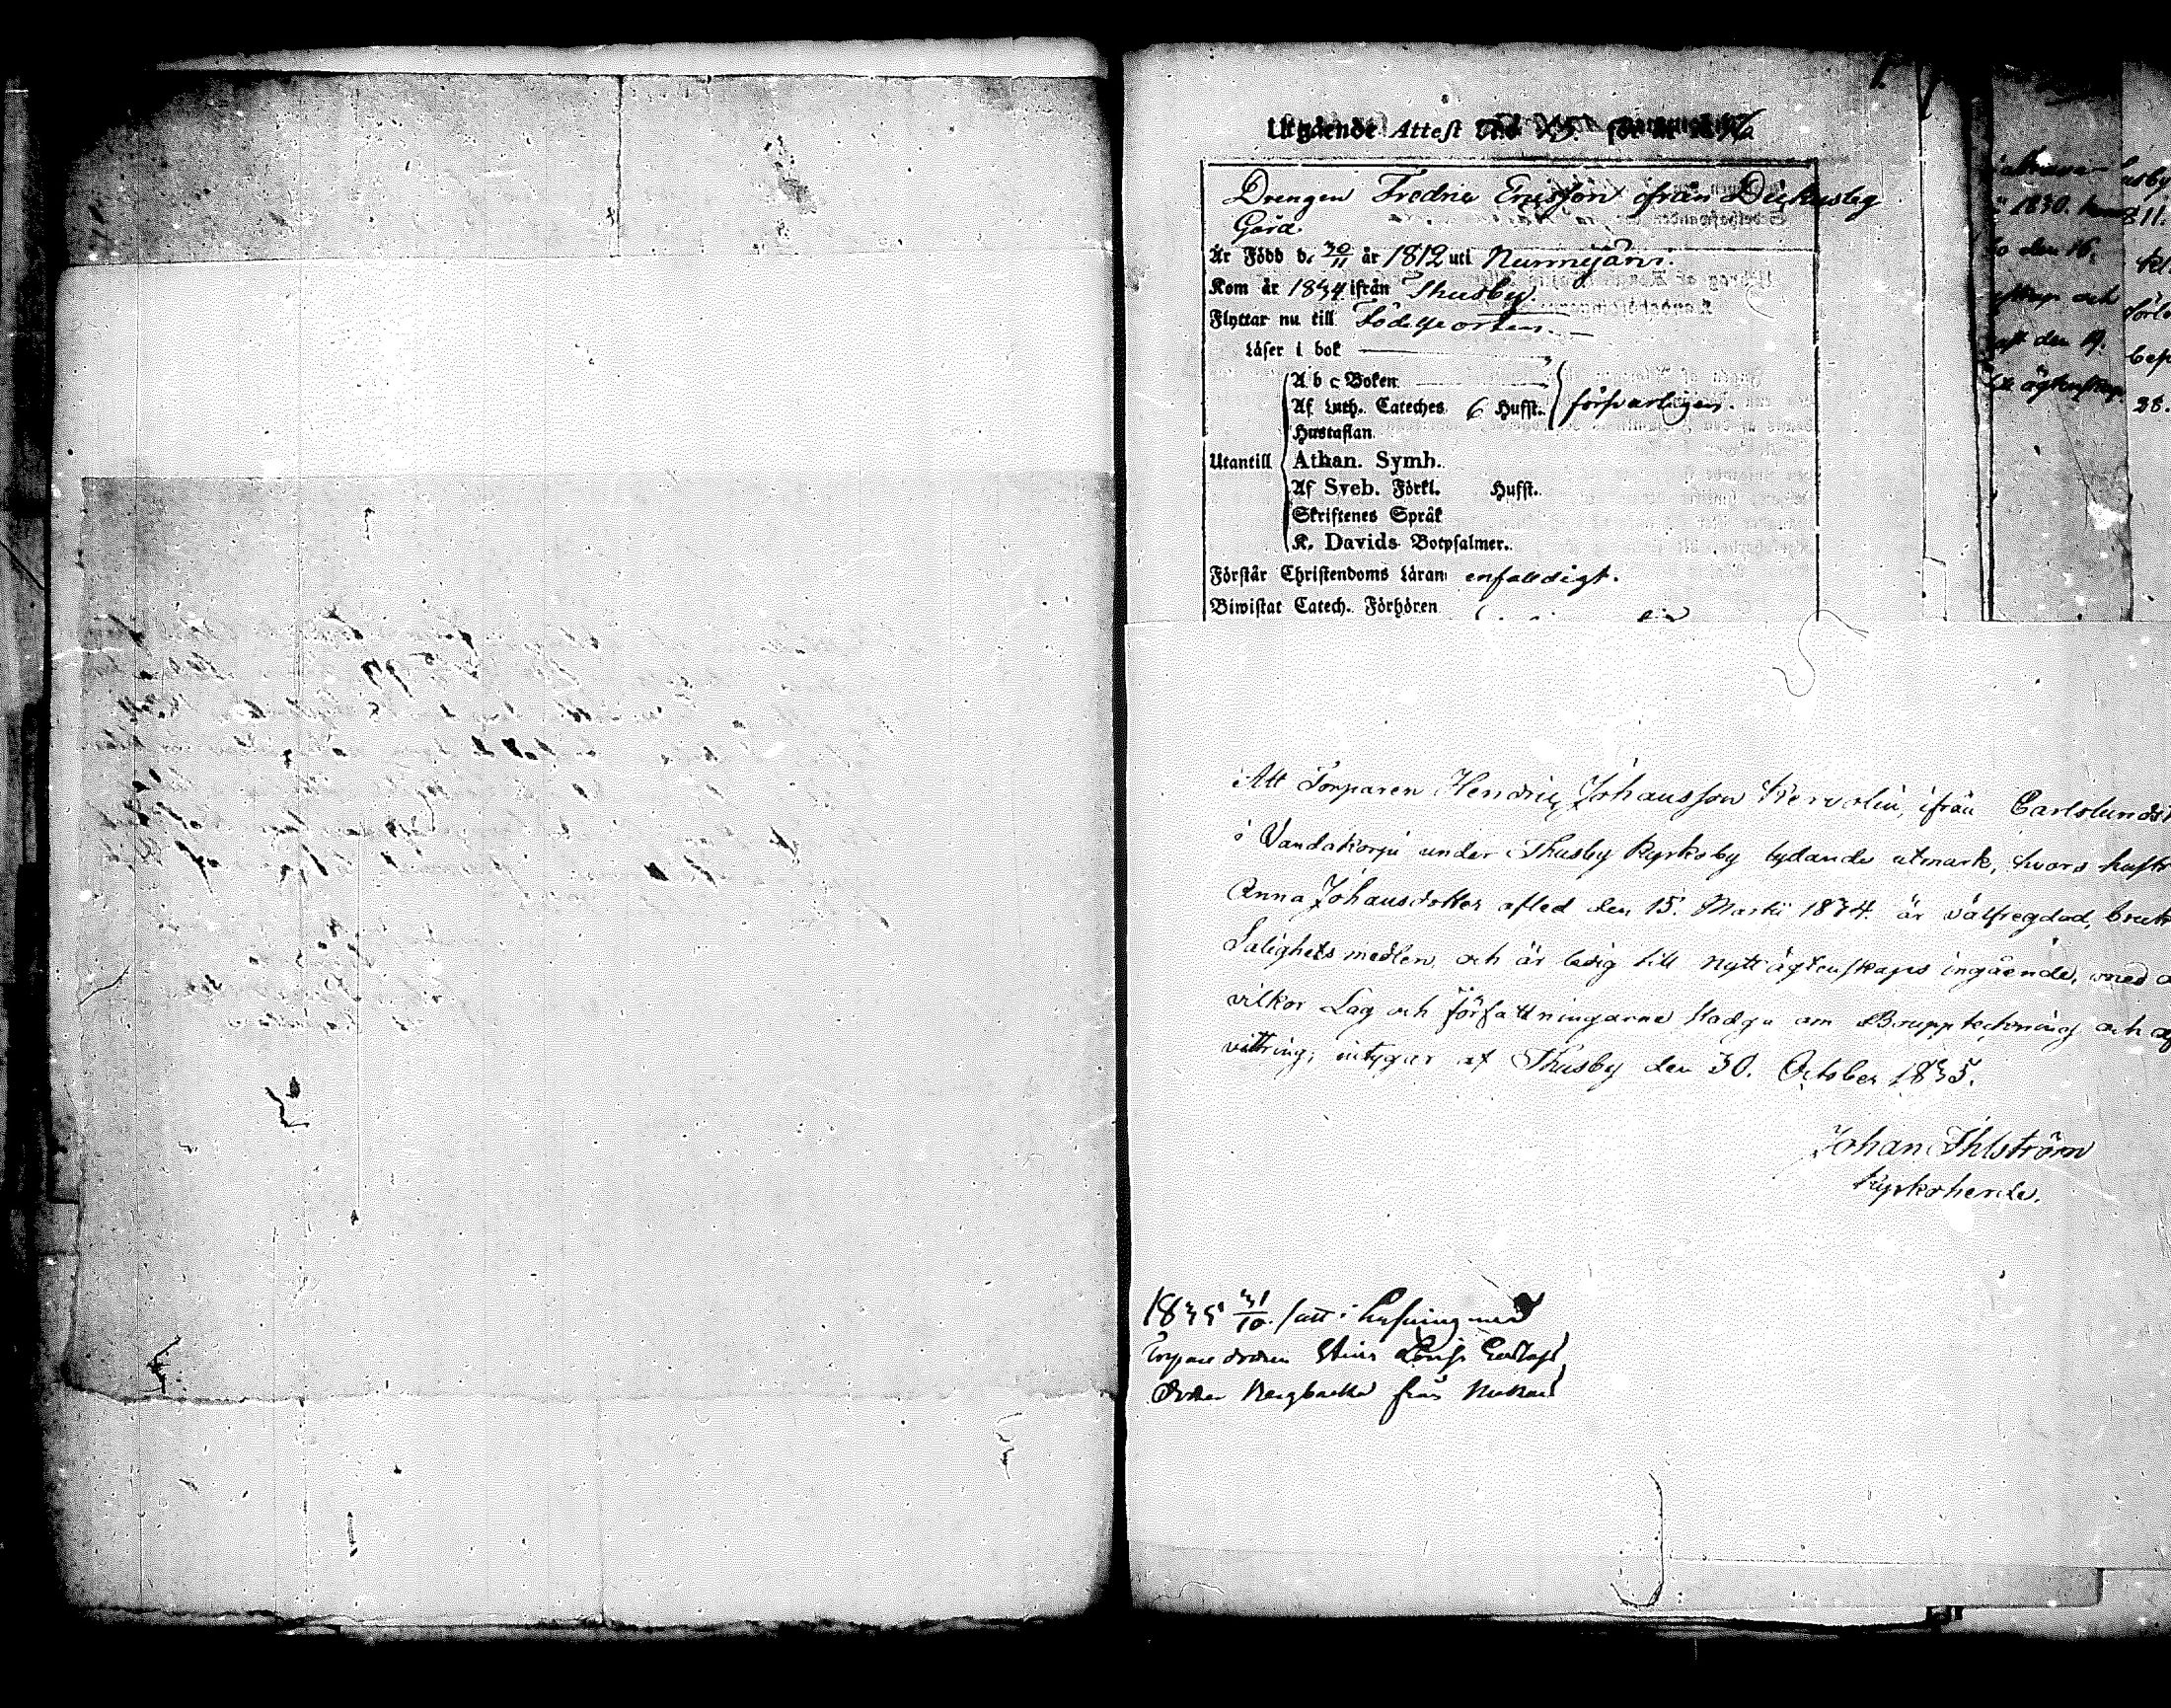 1.
Utgående Attest
Drengen Fredric Ericsson ifrån Dickursby
Gård.
Är Född d. 30/11 år 1812 uti Nurmijärvi.
Kom år 1834 ifrån Thusby.
Flyttar nu till Födelseorten.
Läser i bok
A b c Boken
Af Luth. Cateches 6 Hufst. försvarligen.
Hustaflan
Utantill Athan. Symb.
Af Sveb. Förkl. Hufst.
Skriftenes Språk
K. Davids Botpsalmer.
Förstår Christendoms Läran enfaldigt.
Biwistat Catech. Förhören
Att Torparen Hendric Johansson Kervolin, ifrån Carlslunds
i Vandakorpi under Thusby Kyrkoby lydande utmark, hvars hustr
Anna Johansdotter afled den 15. Martii 1834. är välfregdad, bruk
Salighetsmedlen, och är ledig till nytt ägtenskaps ingående, med
vilkor Lag och författningarne stadga om Boupptekning och af
vittring; intygar af Thusby den 30. October 1835.
Johan Ihlström
Kyrkoherde.
1835 31/10. satt i Lysning med
Torpare dottren Stina Lovisa Gustafs
Dotter Bergbacka från
1830.
811.
den 16.
och
den 19.
28.